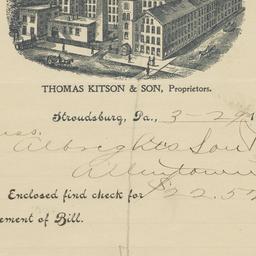 THOMAS KITSON & SON, Proprietors.
Stroudsburg, Pa., 3-29
Albright Son
Allentown
Enclosed find check for $22.52
ement of Bill.